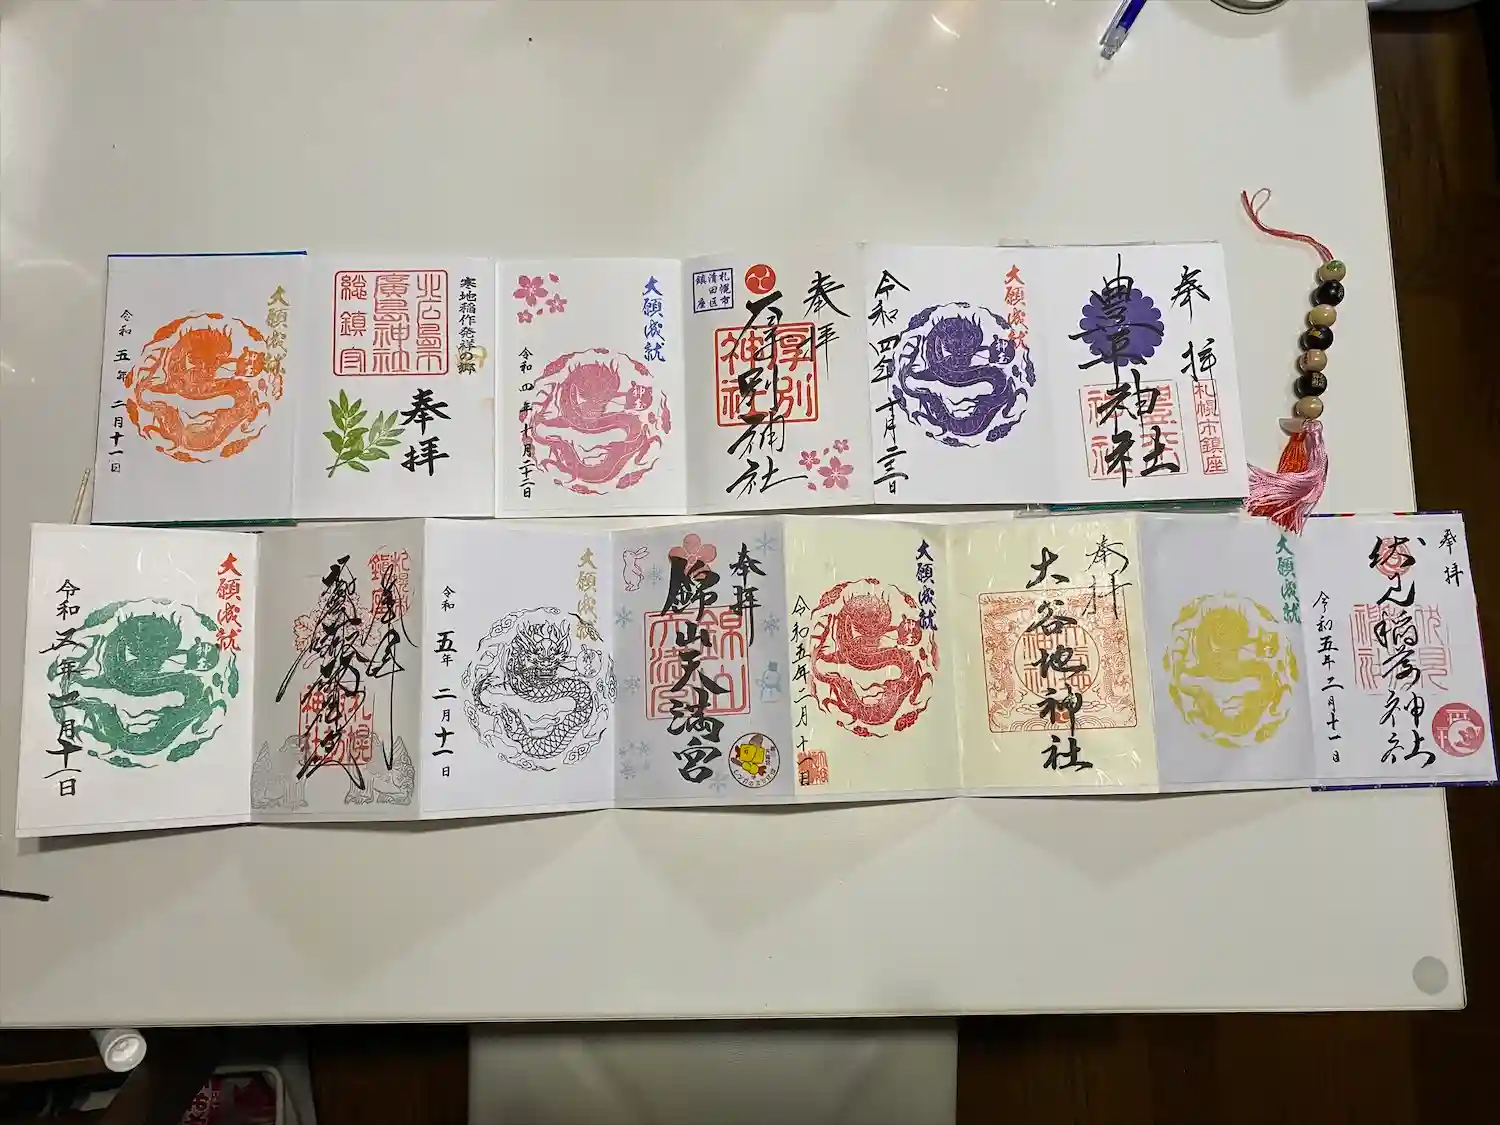 大願成就
神玉
令和五年二月十一日
寒地稲作発祥の郷
北広島市
廣島神社
総鎮守
奉拝
大願成就
神玉
令和四年十月二十二日
札幌市
清田区
鎮座
奉拝
厚別神社
厚別
神社
大願成就
神玉
令和四年十月二三日
奉拝
豊平神社
豊平
神社
札幌市鎮座
大願成就
神玉
令和五年二月十一日
札幌
鎮座
神社
大願成就
令和五年二月十一日
奉拝
錦山天満宮
錦山
天満宮
大願成就
神玉
令和五年二月十一日
奉拝
大谷地神社
大願成就
奉拝
伏見稲荷神社
伏見
神社
令和五年二月十一日